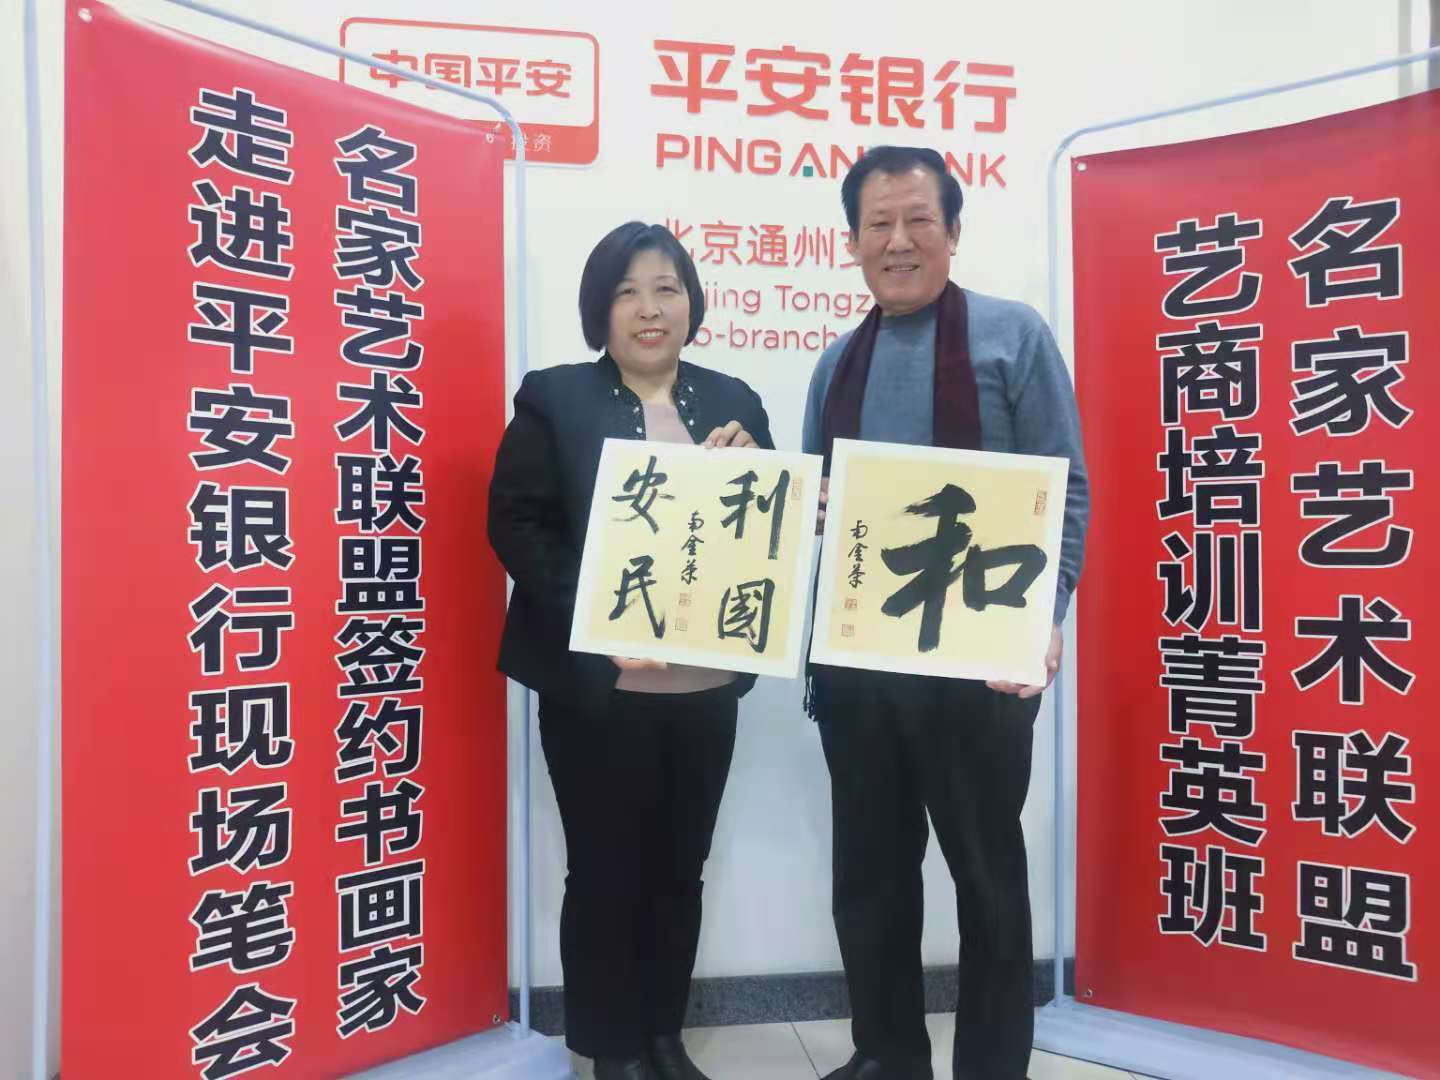 中国平安
投资
平安银行
PING AN
北京通州支
jing Tongz
b-branch
名家艺术联盟签约书画家
走进平安银行现场笔会
名家艺术联盟
艺商培训菁英班
利國
安民
南金荣
和
南金荣